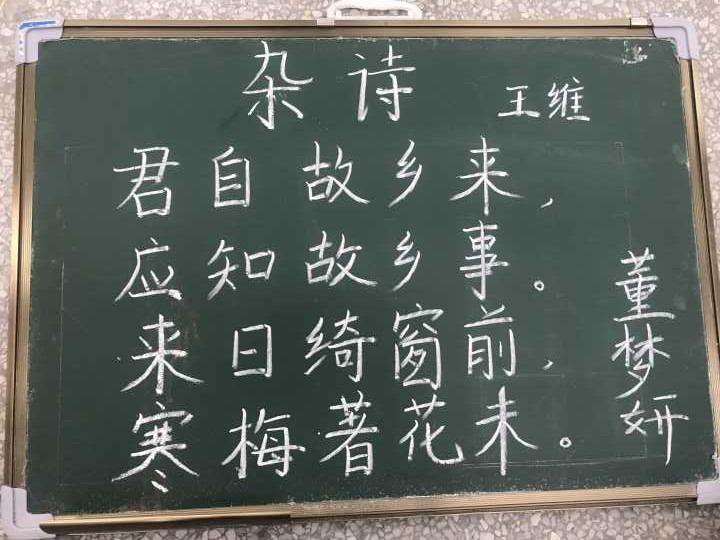 杂诗
王维
君自故乡来，
应知故乡事。
来日绮窗前，
寒梅著花未。
董梦妍